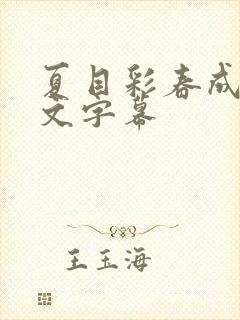 夏目彩春成
文字幕
王玉海